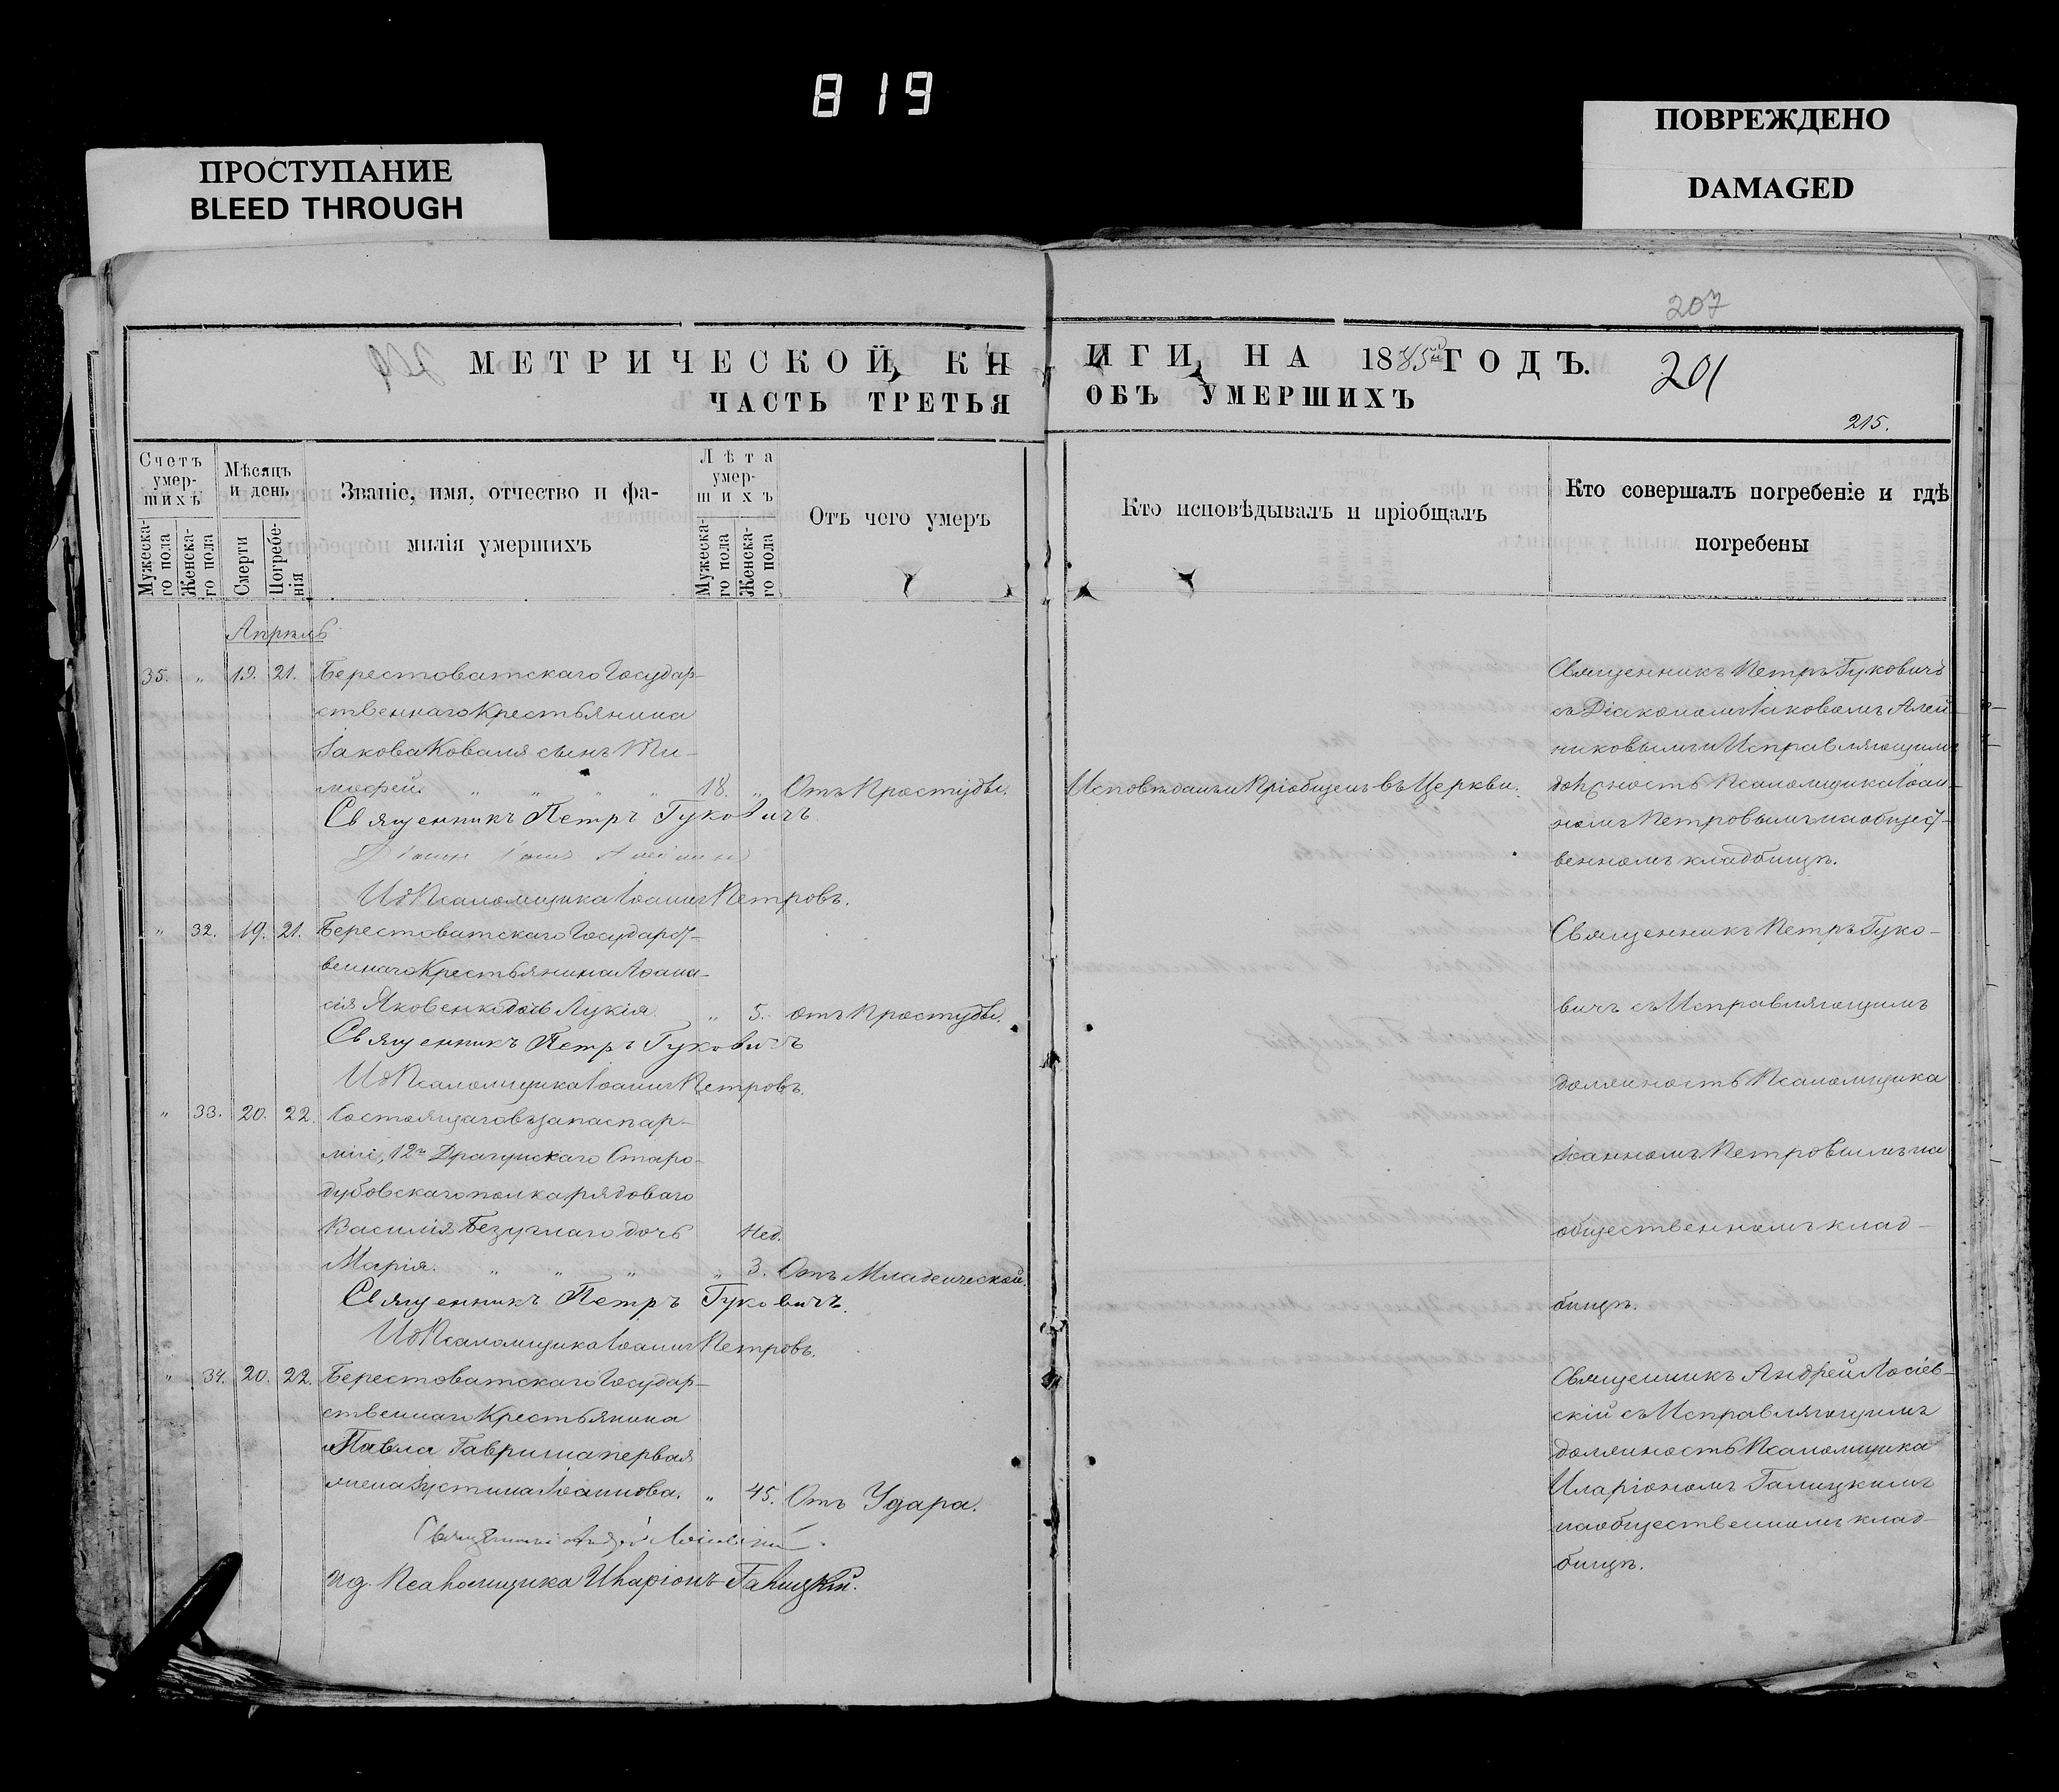 819
ПРОСТУПАНИЕ
BLEED THROUGH
ПОВРЕЖДЕНО
DAMAGED
207
МЕТРИЧЕСКОЙ КНИГИ НА 1885й ГОДЪ.
201
ЧАСТЬ ТРЕТЬЯ ОБЪ УМЕРШИХЪ
215.
Счетъ умер-
шихъ
Мужеска-
го пола
Женска-
го пола
Мѣсяцъ
и день
Смерти
Погребе-
нія
Званіе, имя, отчество и фа-
милія умершихъ
Лѣта
умер-
шихъ
Мужеска-
го пола
Женска-
го пола
Отъ чего умеръ
Кто исповѣдывалъ и пріобщалъ
Кто совершалъ погребеніе и гдѣ
погребены
Апрѣль
35. „ 19. 21. Берестоватскаго Государ-
ственнаго Крестьянина
Іакова Коваля сынъ Ти-
мофей. „ „ „ „ 18. „ Отъ Простуды. Исповѣданъ и Пріобщенъ въ Церкви.
Священникъ Петръ Гуковичъ
съ Діакономъ Іаковомъ Алей
никовымъ и Исправляющимъ
должность Псаломщика Іоан-
номъ Петровымъ на общест-
венномъ кладбищѣ.
Священникъ Петръ Гуковичъ
ИдПсаломщика Іоаннъ Петровъ.
„ 32. 19. 21. Берестоватскаго Государст-
веннаго Крестьянина Аѳана-
сія Яковенко дочь Лукія. „ 5. отъ Простуды.
Священникъ Петръ Гуковичъ
ИдПсаломщика Іоаннъ Петровъ.
Священникъ Петръ Гуко-
вичъ съ Исправляющимъ
должность Псаломщика
Іоанномъ Петровымъ на
общественномъ клад-
бищѣ.
„ 33. 20. 22. Состоящаго въ запасѣ ар-
міи, 12го Драгунскаго Старо-
дубовскаго полка рядоваго
Василія Безуглаго дочь нед.
Марія. „ „ „ „ 3. Отъ Младенческой.
Священникъ Петръ Гуковичъ.
ИдПсаломщика Іоаннъ Петровъ.
„ 34. 20. 22. Берестоватскаго Государ-
ственнаго Крестьянина
Павла Гавриша первая
жена Іустина Іоаннова. „ 45. Отъ Удара.
Священникъ Андрей Лосіевскій.
ид. Псаломщика Иларіонъ Галицкій.
Священникъ Андрей Лосіев-
скій съ Исправляющимъ
должность Псаломщика
Иларіономъ Галицкимъ
на общественномъ клад-
бищѣ.